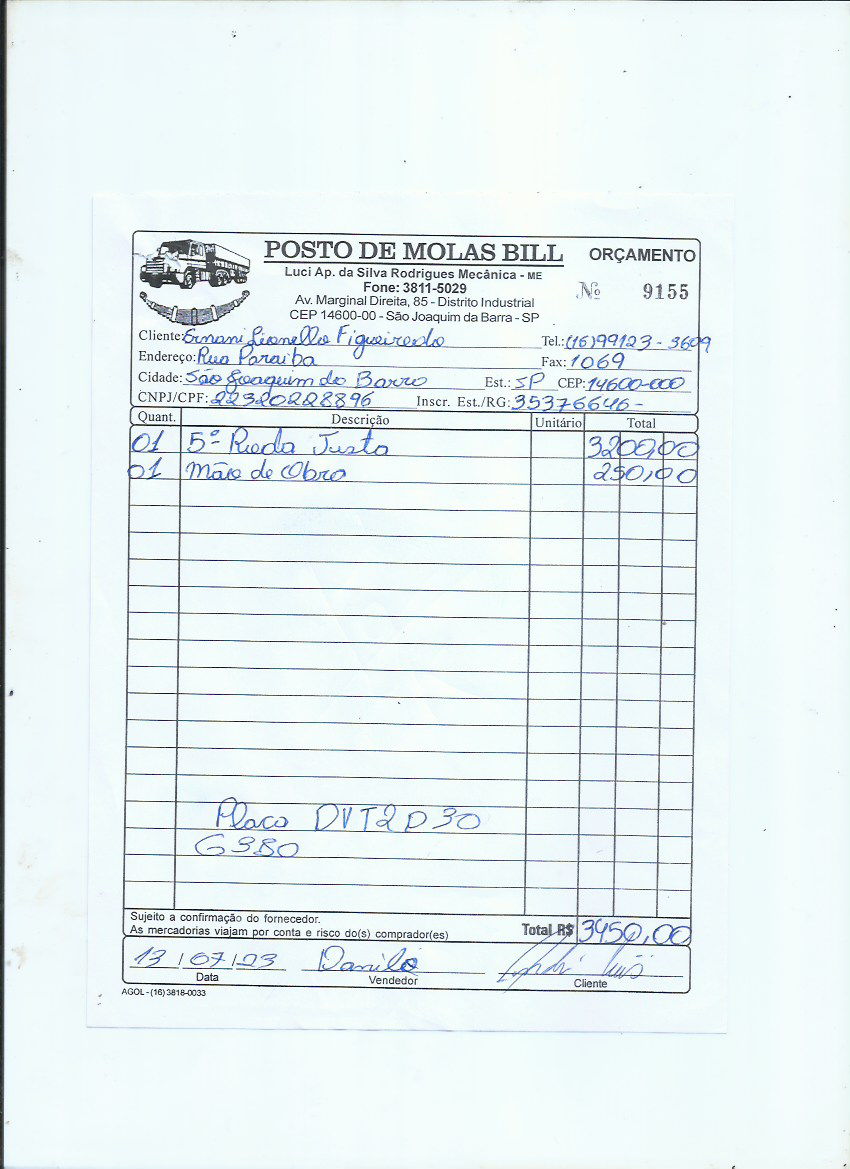 POSTO DE MOLAS BILL
ORÇAMENTO
Luci Ap. da Silva Rodrigues Mecânica - ME
Fone: 3811-5029
Av. Marginal Direita, 85 - Distrito Industrial
CEP 14600-00 - São Joaquim da Barra - SP
Nº 9155
Cliente: Ernani Leonello Figueiredo Tel.: (16)99123-3609
Endereço: Rua Paraiba Fax: 1069
Cidade: São Joaquim da Barra Est.: SP CEP: 14600-000
CNPJ/CPF: 22320228896 Inscr. Est./RG: 35376646-
Quant. Descrição Unitário Total
01 5ª Roda Justo 3200,00
01 Mão de Obra 250,00
Placa DVT2D30
G380
Sujeito a confirmação do fornecedor.
As mercadorias viajam por conta e risco do(s) comprador(es)
Total R$ 3450,00
13/07/23 Danilo
Data Vendedor Cliente
AGOL - (16) 3818-0033